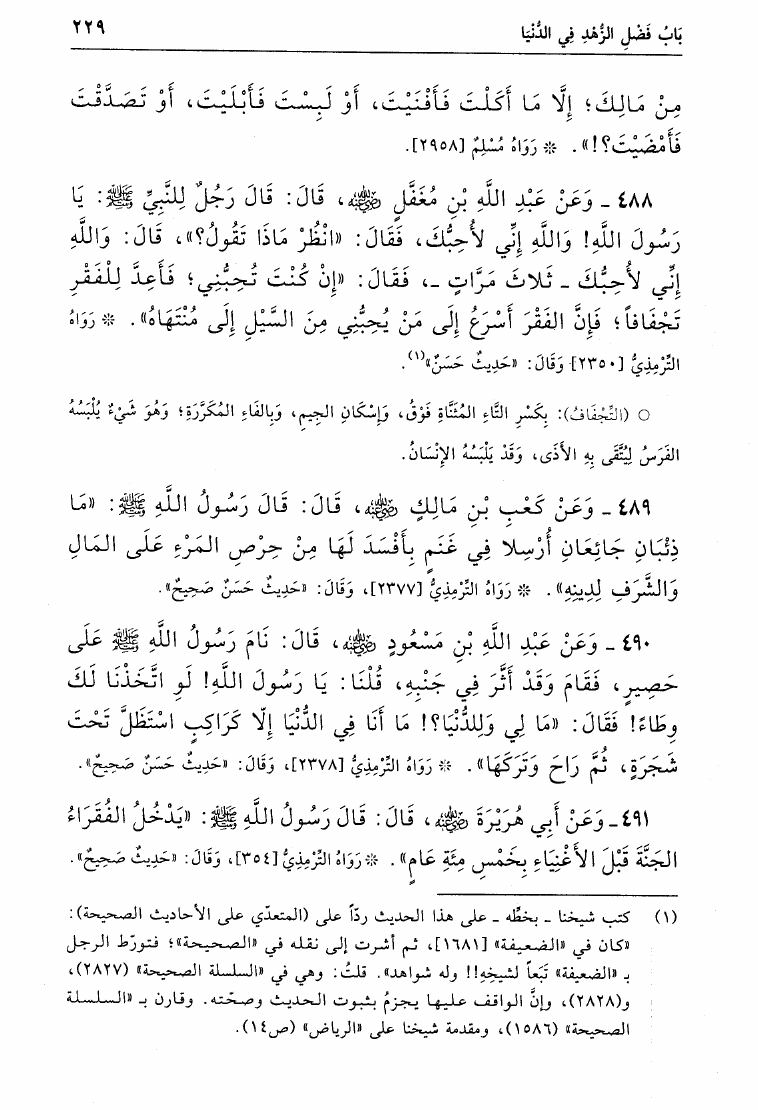 بَابُ فَضْلِ الزُّهْدِ فِي الدُّنْيَا ٢٢٩
مِنْ مَالِكَ؛ إِلَّا مَا أَكَلْتَ فَأَفْنَيْتَ، أَوْ لَبِسْتَ فَأَبْلَيْتَ، أَوْ تَصَدَّقْتَ
فَأَمْضَيْتَ؟!». * رَوَاهُ مُسْلِمٌ [٢٩٥٨].
٤٨٨ ـ وَعَنْ عَبْدِ اللَّهِ بْنِ مُغَفَّلٍ رضي الله عنه، قَالَ: قَالَ رَجُلٌ لِلنَّبِيِّ ﷺ: يَا
رَسُولَ اللَّهِ! وَاللَّهِ إِنِّي لأُحِبُّكَ، فَقَالَ: «انْظُرْ مَاذَا تَقُولُ؟»، قَالَ: وَاللَّهِ
إِنِّي لأُحِبُّكَ ـ ثَلاثَ مَرَّاتٍ ـ، فَقَالَ: «إِنْ كُنْتَ تُحِبُّنِي؛ فَأَعِدَّ لِلْفَقْرِ
تَجْفَافاً؛ فَإِنَّ الفَقْرَ أَسْرَعُ إِلَى مَنْ يُحِبُّنِي مِنَ السَّيْلِ إِلَى مُنْتَهَاهُ». * رَوَاهُ
التِّرْمِذِيُّ [٢٣٥٠] وَقَالَ: «حَدِيثٌ حَسَنٌ»(١).
○ (التِّجْفَافُ): بِكَسْرِ التَّاءِ المُثَنَّاةِ فَوْقُ، وَإِسْكَانِ الجِيمِ، وَبِالفَاءِ المُكَرَّرَةِ؛ وَهُوَ شَيْءٌ يُلْبَسُهُ
الفَرَسُ لِيُتَّقَى بِهِ الأَذَى، وَقَدْ يَلْبَسُهُ الإِنْسَانُ.
٤٨٩ ـ وَعَنْ كَعْبِ بْنِ مَالِكٍ رضي الله عنه، قَالَ: قَالَ رَسُولُ اللَّهِ ﷺ: «مَا
ذِئْبَانِ جَائِعَانِ أُرْسِلا فِي غَنَمٍ بِأَفْسَدَ لَهَا مِنْ حِرْصِ المَرْءِ عَلَى المَالِ
وَالشَّرَفِ لِدِينِهِ». * رَوَاهُ التِّرْمِذِيُّ [٢٣٧٧]، وَقَالَ: «حَدِيثٌ حَسَنٌ صَحِيحٌ».
٤٩٠ ـ وَعَنْ عَبْدِ اللَّهِ بْنِ مَسْعُودٍ رضي الله عنه، قَالَ: نَامَ رَسُولُ اللَّهِ ﷺ عَلَى
حَصِيرٍ، فَقَامَ وَقَدْ أَثَّرَ فِي جَنْبِهِ، قُلْنَا: يَا رَسُولَ اللَّهِ! لَوِ اتَّخَذْنَا لَكَ
وِطَاءً! فَقَالَ: «مَا لِي وَلِلدُّنْيَا؟! مَا أَنَا فِي الدُّنْيَا إِلّا كَرَاكِبٍ اسْتَظَلَّ تَحْتَ
شَجَرَةٍ، ثُمَّ رَاحَ وَتَرَكَهَا». * رَوَاهُ التِّرْمِذِيُّ [٢٣٧٨]، وَقَالَ: «حَدِيثٌ حَسَنٌ صَحِيحٌ».
٤٩١ ـ وَعَنْ أَبِي هُرَيْرَةَ رضي الله عنه، قَالَ: قَالَ رَسُولُ اللَّهِ ﷺ: «يَدْخُلُ الفُقَرَاءُ
الجَنَّةَ قَبْلَ الأَغْنِيَاءِ بِخَمْسِ مِئَةِ عَامٍ». * رَوَاهُ التِّرْمِذِيُّ [٣٥٤]، وَقَالَ: «حَدِيثٌ صَحِيحٌ».
(١) كتب شيخنا ـ بخطّه ـ على هذا الحديث ردّاً على (المتعدّي على الأحاديث الصحيحة):
«كان في «الضعيفة» [١٦٨١]، ثم أشرت إلى نقله في «الصحيحة»؛ فتورّط الرجل
بـ «الضعيفة» تَبَعاً لشيخِهِ!! وله شواهد». قلتُ: وهي في «السلسلة الصحيحة» (٢٨٢٧)،
و(٢٨٢٨)، وإنَّ الواقف عليها يجزمُ بثبوت الحديث وصحّته. وقارن بـ «السلسلة
الصحيحة» (١٥٨٦)، ومقدمة شيخنا على «الرياض» (ص١٤).